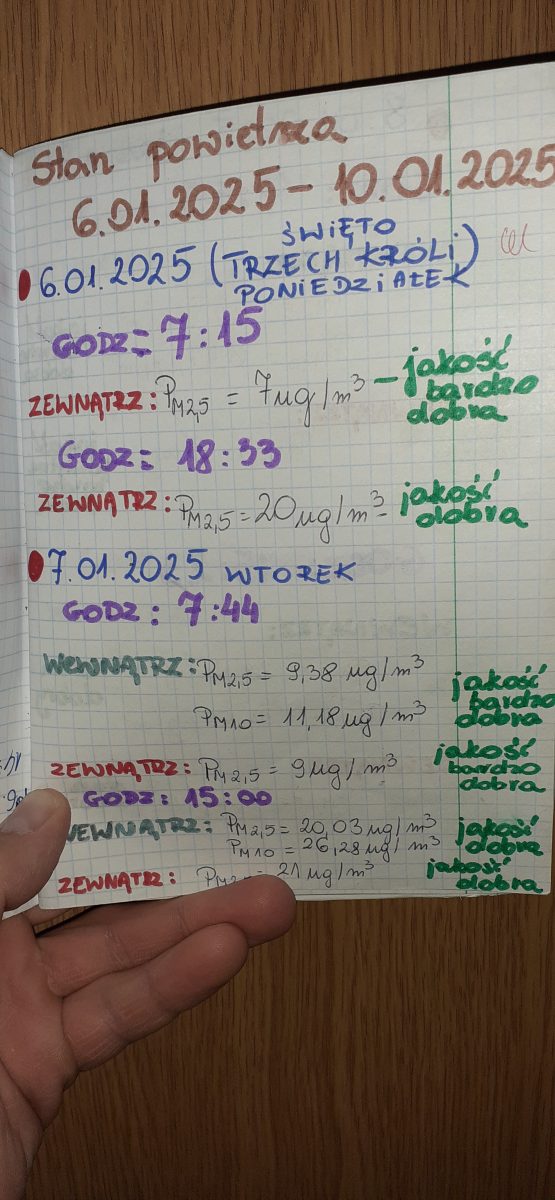 Stan powietrza
6.01.2025 - 10.01.2025
6.01.2025 (ŚWIĘTO TRZECH KRÓLI)
PONIEDZIAŁEK
GODZ = 7:15
ZEWNĄTRZ: PM2,5 = 7 ug/m³ - jakość
bardzo
dobra
GODZ = 18:33
ZEWNĄTRZ: PM2,5 = 20 ug/m³ - jakość
dobra
7.01.2025 WTOREK
GODZ: 7:44
WEWNĄTRZ: PM2,5 = 9,38 ug/m³
PM10 = 11,18 ug/m³
jakość
bardzo
dobra
ZEWNĄTRZ: PM2,5 = 9 ug/m³
jakość
bardzo
dobra
GODZ: 15:00
WEWNĄTRZ: PM2,5 = 20,03 ug/m³
PM10 = 26,28 ug/m³
jakość
dobra
ZEWNĄTRZ: 21 ug/m³
jakość
dobra